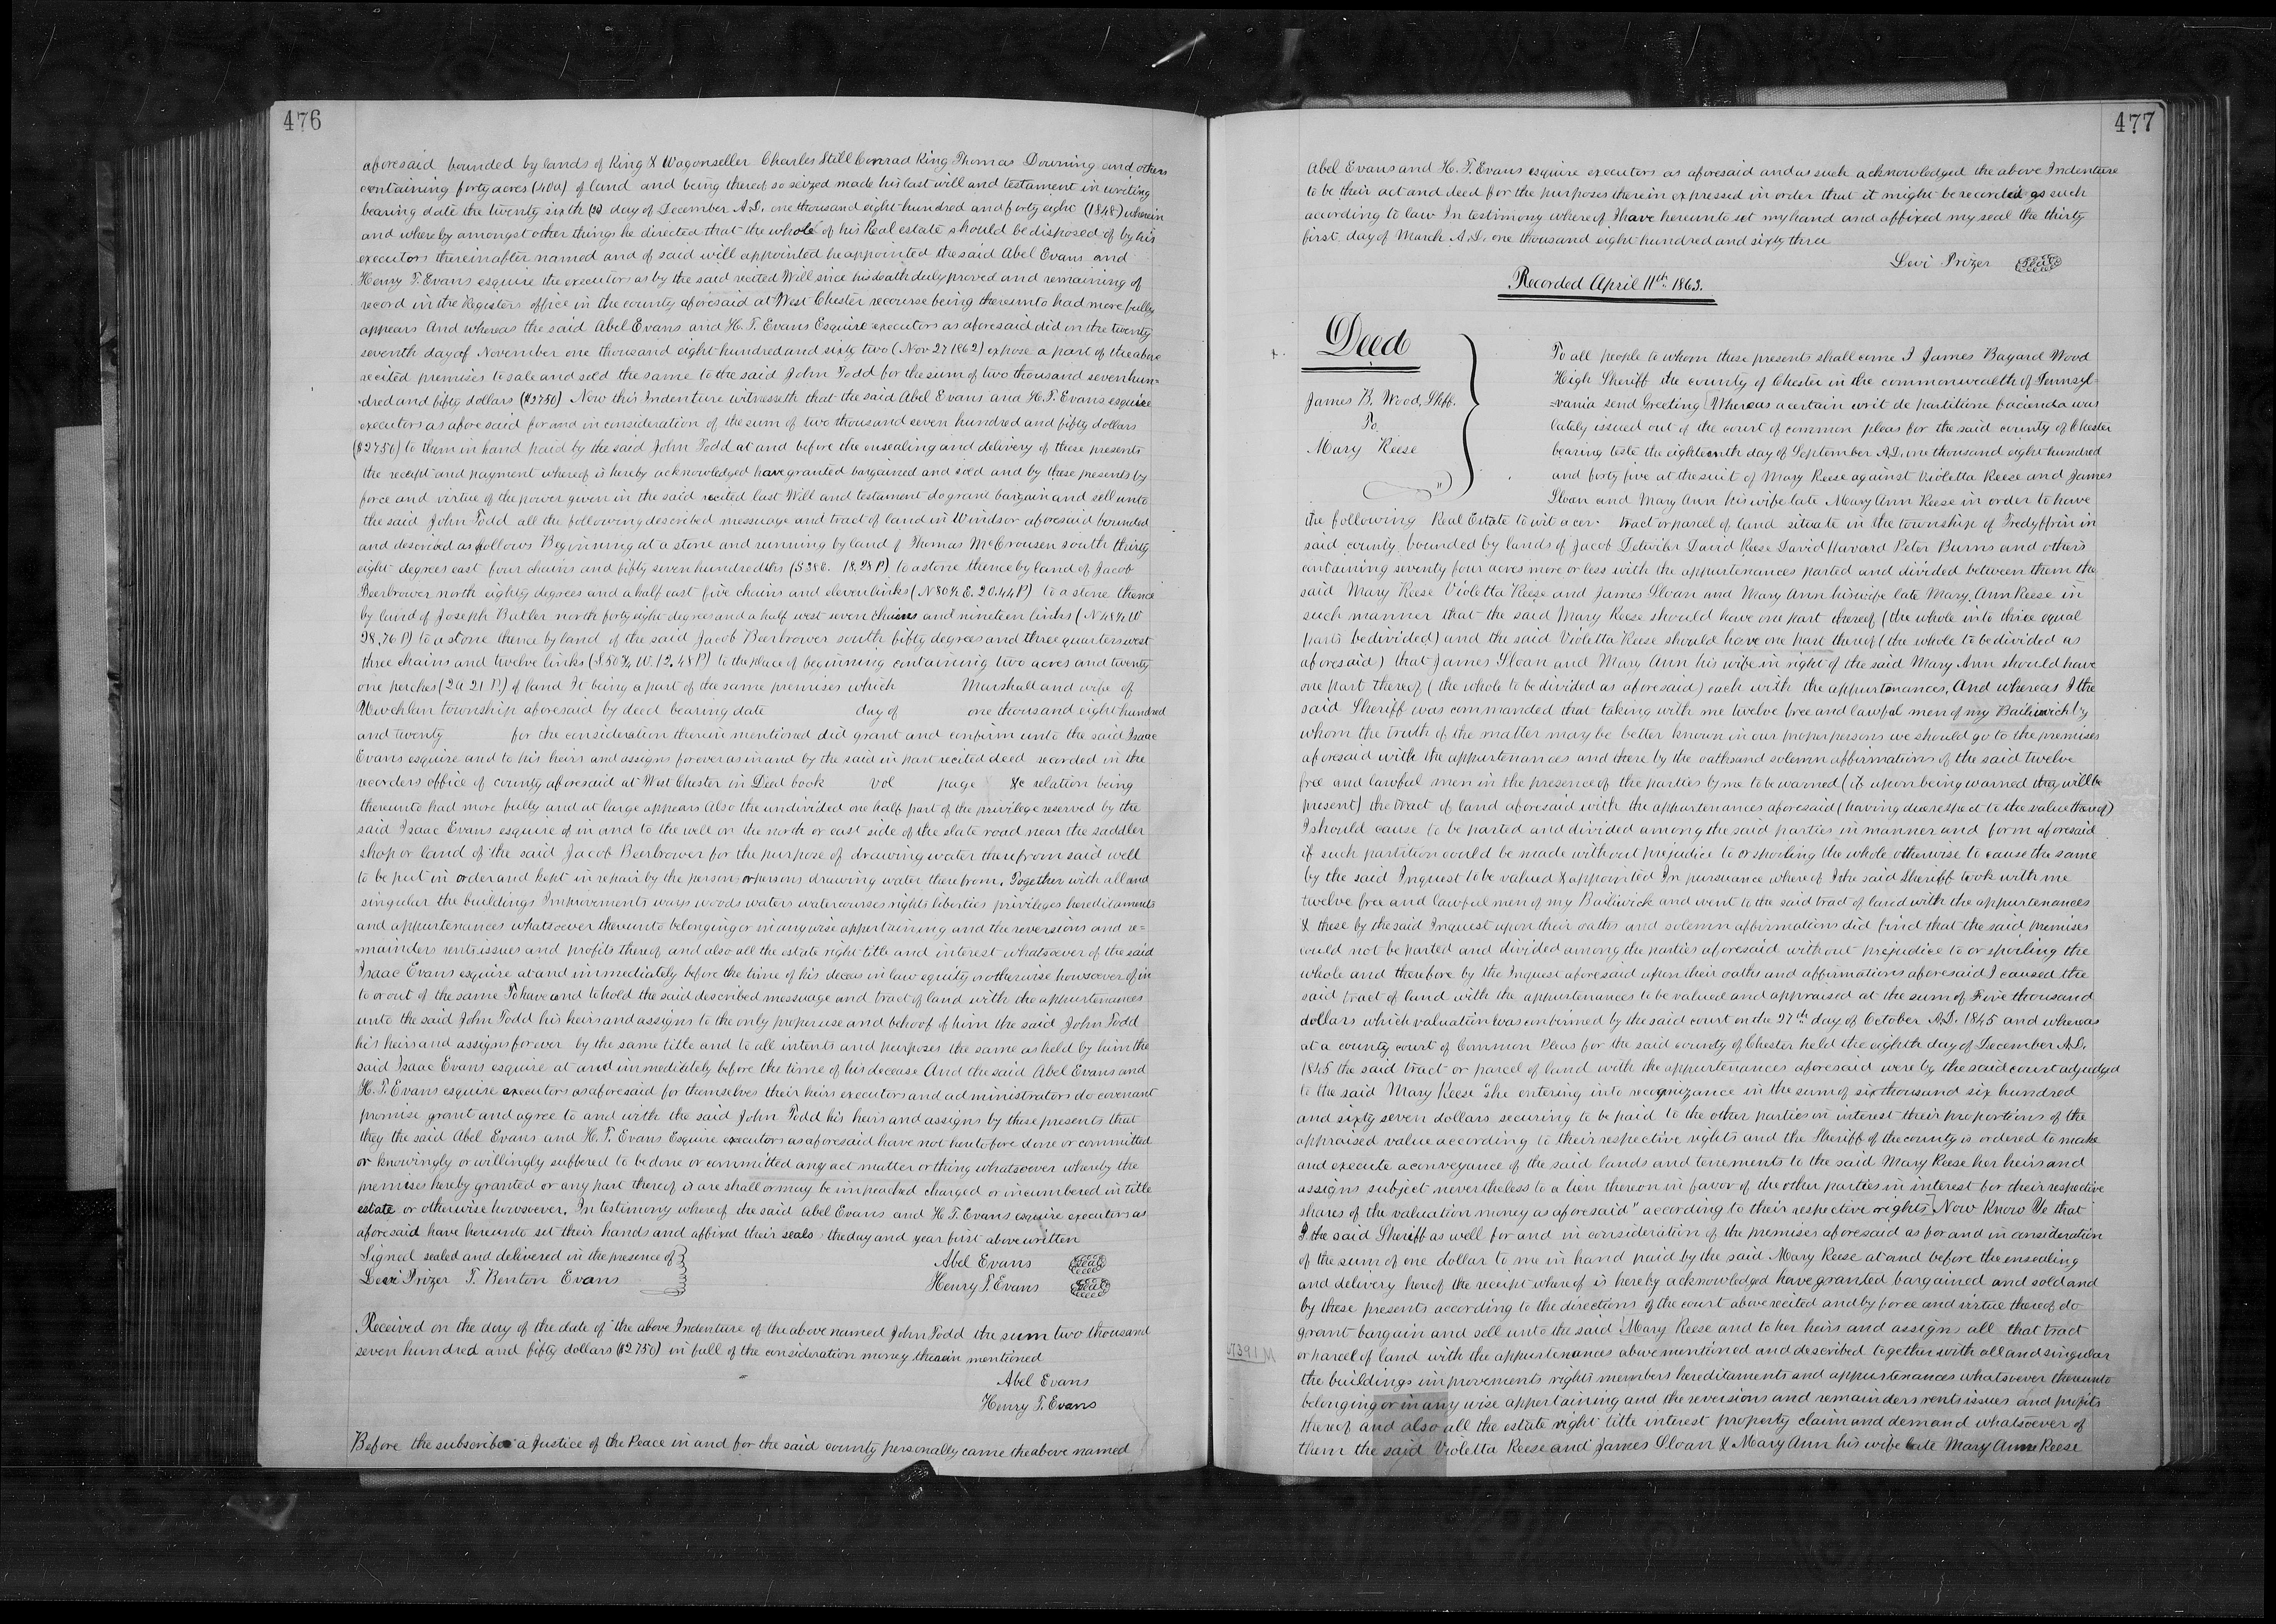 476
aforesaid bounded by lands of King & Wagonseller Charles Still Conrad King Thomas Downing and others
containing forty acres (40a) of land and being thereof so seized made his last will and testament in writing
bearing date the twenty sixth day of December A.D. one thousand eight hundred and forty eight (1848) wherein
and whereby amongst other things he directed that the whole of his Real estate should be disposed of by his
executors thereinafter named and of said will appointed he appointed the said Abel Evans and
Henry T. Evans esquire the executors as by the said recited Will since his death duly proved and remaining of
record in the Registers office in the county aforesaid at West Chester recourse being thereunto had more fully
appears And whereas the said Abel Evans and H. T. Evans Esquire executors as aforesaid did on the twenty
seventh day of November one thousand eight hundred and sixty two (Nov 27 1862) expose a part of the above
recited premises to sale and sold the same to the said John Todd for the sum of two thousand seven hun=
=dred and fifty dollars ($2750) Now this Indenture witnesseth that the said Abel Evans and H. T. Evans esquire
executors as aforesaid for and in consideration of the sum of two thousand seven hundred and fifty dollars
($2750) to them in hand paid by the said John Todd at and before the ensealing and delivery of these presents
the receipt and payment whereof is hereby acknowledged have granted bargained and sold and by these presents by
force and virtue of the power given in the said recited last Will and testament do grant bargain and sell unto
the said John Todd all the following described messuage and tract of land in Windsor aforesaid bounded
and described as follows Beginning at a stone and running by land of Thomas McCrousen south thirty
eight degrees east four chains and fifty seven hundredths (S 38 E. 18.28 P) to a stone thence by land of Jacob
Beerbrower north eighty degrees and a half east five chains and eleven links (N 80½ E. 20.44 P) to a stone thence
by land of Joseph Butler north forty eight degrees and a half west seven chains and nineteen links (N 48½ W
28.76 P) to a stone thence by land of the said Jacob Beerbrower south fifty degrees and three quarters west
three chains and twelve links (S. 50¾ W. 12.48 P) to the place of beginning containing two acres and twenty
one perches (2a 21 P.) of land It being a part of the same premises which Marshall and wife of
Uwchlan township aforesaid by deed bearing date day of one thousand eight hundred
and twenty for the consideration therein mentioned did grant and confirm unto the said Isaac
Evans esquire and to his heirs and assigns forever as in and by the said in part recited deed recorded in the
recorders office of county aforesaid at West Chester in Deed book vol page &c relation being
thereunto had more fully and at large appears Also the undivided one half part of the privilege reserved by the
said Isaac Evans esquire of in and to the well on the north or east side of the state road near the saddler
shop or land of the said Jacob Beerbrower for the purpose of drawing water therefrom said well
to be put in order and kept in repair by the person or persons drawing water therefrom. Together with all and
singular the buildings Improvements ways woods waters watercourses rights liberties privileges hereditaments
and appurtenances whatsoever thereunto belonging or in anywise appertaining and the reversions and re=
=mainders rents issues and profits thereof and also all the estate right title and interest whatsoever of the said
Isaac Evans esquire at and immediately before the time of his deceas in law equity or otherwise howsoever of in
to or out of the same To have and to hold the said described messuage and tract of land with the appurtenances
unto the said John Todd his heirs and assigns to the only proper use and behoof of him the said John Todd
his heirs and assigns forever by the same title and to all intents and purposes the same as held by him the
said Isaac Evans esquire at and immeditely before the time of his decease And the said Abel Evans and
H. T. Evans esquire executors as aforesaid for themselves their heirs executors and administrators do covenant
promise grant and agree to and with the said John Todd his heirs and assigns by these presents that
they the said Abel Evans and H. T. Evans Esquire executors as aforesaid have not heretofore done or committed
or knowingly or willingly suffered to be done or committed any act matter or thing whatsoever whereby the
premises hereby granted or any part thereof is are shall or may be impeached charged or incumbered in title
estate or otherwise howsoever. In testimony whereof the said Abel Evans and H T. Evans esquire executors as
aforesaid have hereunto set their hands and affixed their seals the day and year first above written
Signed sealed and delivered in the presence of
Abel Evans Seal
Levi Prizer T. Benton Evans
Henry T. Evans Seal
Received on the day of the date of the above Indenture of the above named John Todd the sum two thousand
seven hundred and fifty dollars ($2750) in full of the consideration money therein mentioned
Abel Evans
Henry T. Evans
Before the subscriber a Justice of the Peace in and for the said county personally came the above named
477
Abel Evans and H. T. Evans esquire executors as aforesaid and as such acknowledged the above Indenture
to be their act and deed for the purposes therein expressed in order that it might be recorded as such
according to law In testimony whereof I have hereunto set my hand and affixed my seal the thirty
first day of March A.D. one thousand eight hundred and sixty three
Levi Prizer Seal
Recorded April 11th 1863.
Deed
James B. Wood, Shff.
To
Mary Reese
To all people to whom these presents shall come I James Bayard Wood
High Sheriff the county of Chester in the commonwealth of Pennsyl=
=vania send Greeting Whereas a certain writ de partitione facienda was
lately issued out of the court of common pleas for the said county of Chester
bearing teste the eighteenth day of September A.D. one thousand eight hundred
and forty five at the suit of Mary Reese against Violetta Reese and James
Sloan and Mary Ann his wife late Mary Ann Reese in order to have
the following Real Estate to wit a cer. tract or parcel of land situate in the township of Tredyffrin in
said county bounded by lands of Jacob Detwiler David Reese David Havard Peter Burns and others
containing seventy four acres more or less with the appurtenances parted and divided between them the
said Mary Reese Violetta Reese and James Sloan and Mary Ann his wife late Mary Ann Reese in
such manner that the said Mary Reese should have one part thereof (the whole into three equal
parts be divided) and the said Violetta Reese should have one part thereof (the whole to be divided as
aforesaid) that James Sloan and Mary Ann his wife in right of the said Mary Ann should have
one part thereof (the whole to be divided as aforesaid) each with the appurtenances. And whereas I the
said Sheriff was commanded that taking with me twelve free and lawful men of my Bailiwick by
whom the truth of the matter may be better known in our proper persons we should go to the premises
aforesaid with the appurtenances and there by the oaths and solemn affirmations of the said twelve
free and lawful men in the presence of the parties by me to be warned (if upon being warned they will be
present) the tract of land aforesaid with the appurtenances aforesaid (having due respect to the value thereof)
I should cause to be parted and divided among the said parties in manner and form aforesaid
if such partition could be made without prejudice to or spoiling the whole otherwise to cause the same
by the said Inquest to be valued & appointed In pursuance whereof I the said Sheriff took with me
twelve free and lawful men of my Bailiwick and went to the said tract of land with the appurtenances
& these by the said Inquest upon their oaths and solemn affirmations did find that the said premises
could not be parted and divided among the parties aforesaid without prejudice to or spoiling the
whole and therefore by the Inquest aforesaid upon their oaths and affirmations aforesaid I caused the
said tract of land with the appurtenances to be valued and appraised at the sum of Five thousand
dollars which valuation was confirmed by the said court on the 27th day of October A.D. 1845 and whereas
at a county court of Common Pleas for the said county of Chester held the eighth day of December A.D.
1845 the said tract or parcel of land with the appurtenances aforesaid were by the said court adjudged
to the said Mary Reese "she entering into recognizance in the sum of six thousand six hundred
and sixty seven dollars securing to be paid to the other parties in interest their proportions of the
appraised value according to their respective rights and the Sheriff of the county is ordered to make
and execute a conveyance of the said lands and tenements to the said Mary Reese her heirs and
assigns subject nevertheless to a lien thereon in favor of the other parties in interest for their respective
shares of the valuation money as aforesaid" according to their respective rights Now Know Ye that
I the said Sheriff as well for and in consideration of the premises aforesaid as for and in consideration
of the sum of one dollar to me in hand paid by the said Mary Reese at and before the ensealing
and delivery hereof the receipt whereof is hereby acknowledged have granted bargained and sold and
by these presents according to the directions of the court above recited and by force and virtue thereof do
grant bargain and sell unto the said Mary Reese and to her heirs and assigns all that tract
or parcel of land with the appurtenances above mentioned and described together with all and singular
the buildings improvements rights members hereditaments and appurtenances whatsoever thereunto
belonging or in any wise appertaining and the reversions and remainders rents issues and profits
thereof and also all the estate right title interest property claim and demand whatsoever of
them the said Violetta Reese and James Sloan & Mary Ann his wife late Mary Ann Reese